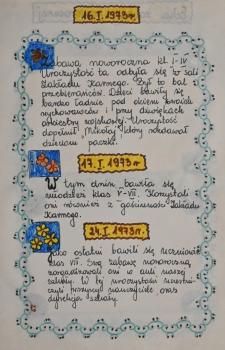 16.I.1973r.
Zabawa noworoczna kl. I-IV
Uroczystość ta odbyła się w sali
Zakładu Karnego. Był to bal
przebierańców. Dzieci bawiły się
bardzo ładnie pod okiem swoich
wychowawców i przy dźwiękach
orkiestry wojskowej. Uroczystość
dopełnił Mikołaj który rozdawał
dzieciom paczki.
17.I.1973r
W tym dniu bawiła się
młodzież klas V-VII. Korzystali z
oni również z gościnności Zakładu
Karnego.
24.I.1973r.
Jako ostatni bawili się uczniowie
klas VIII. Swą zabawę noworoczną
zorganizowali oni w auli naszej
szkoły. W tej uroczystości uczestni-
czyli również nauczyciele oraz
dyrekcja szkoły.